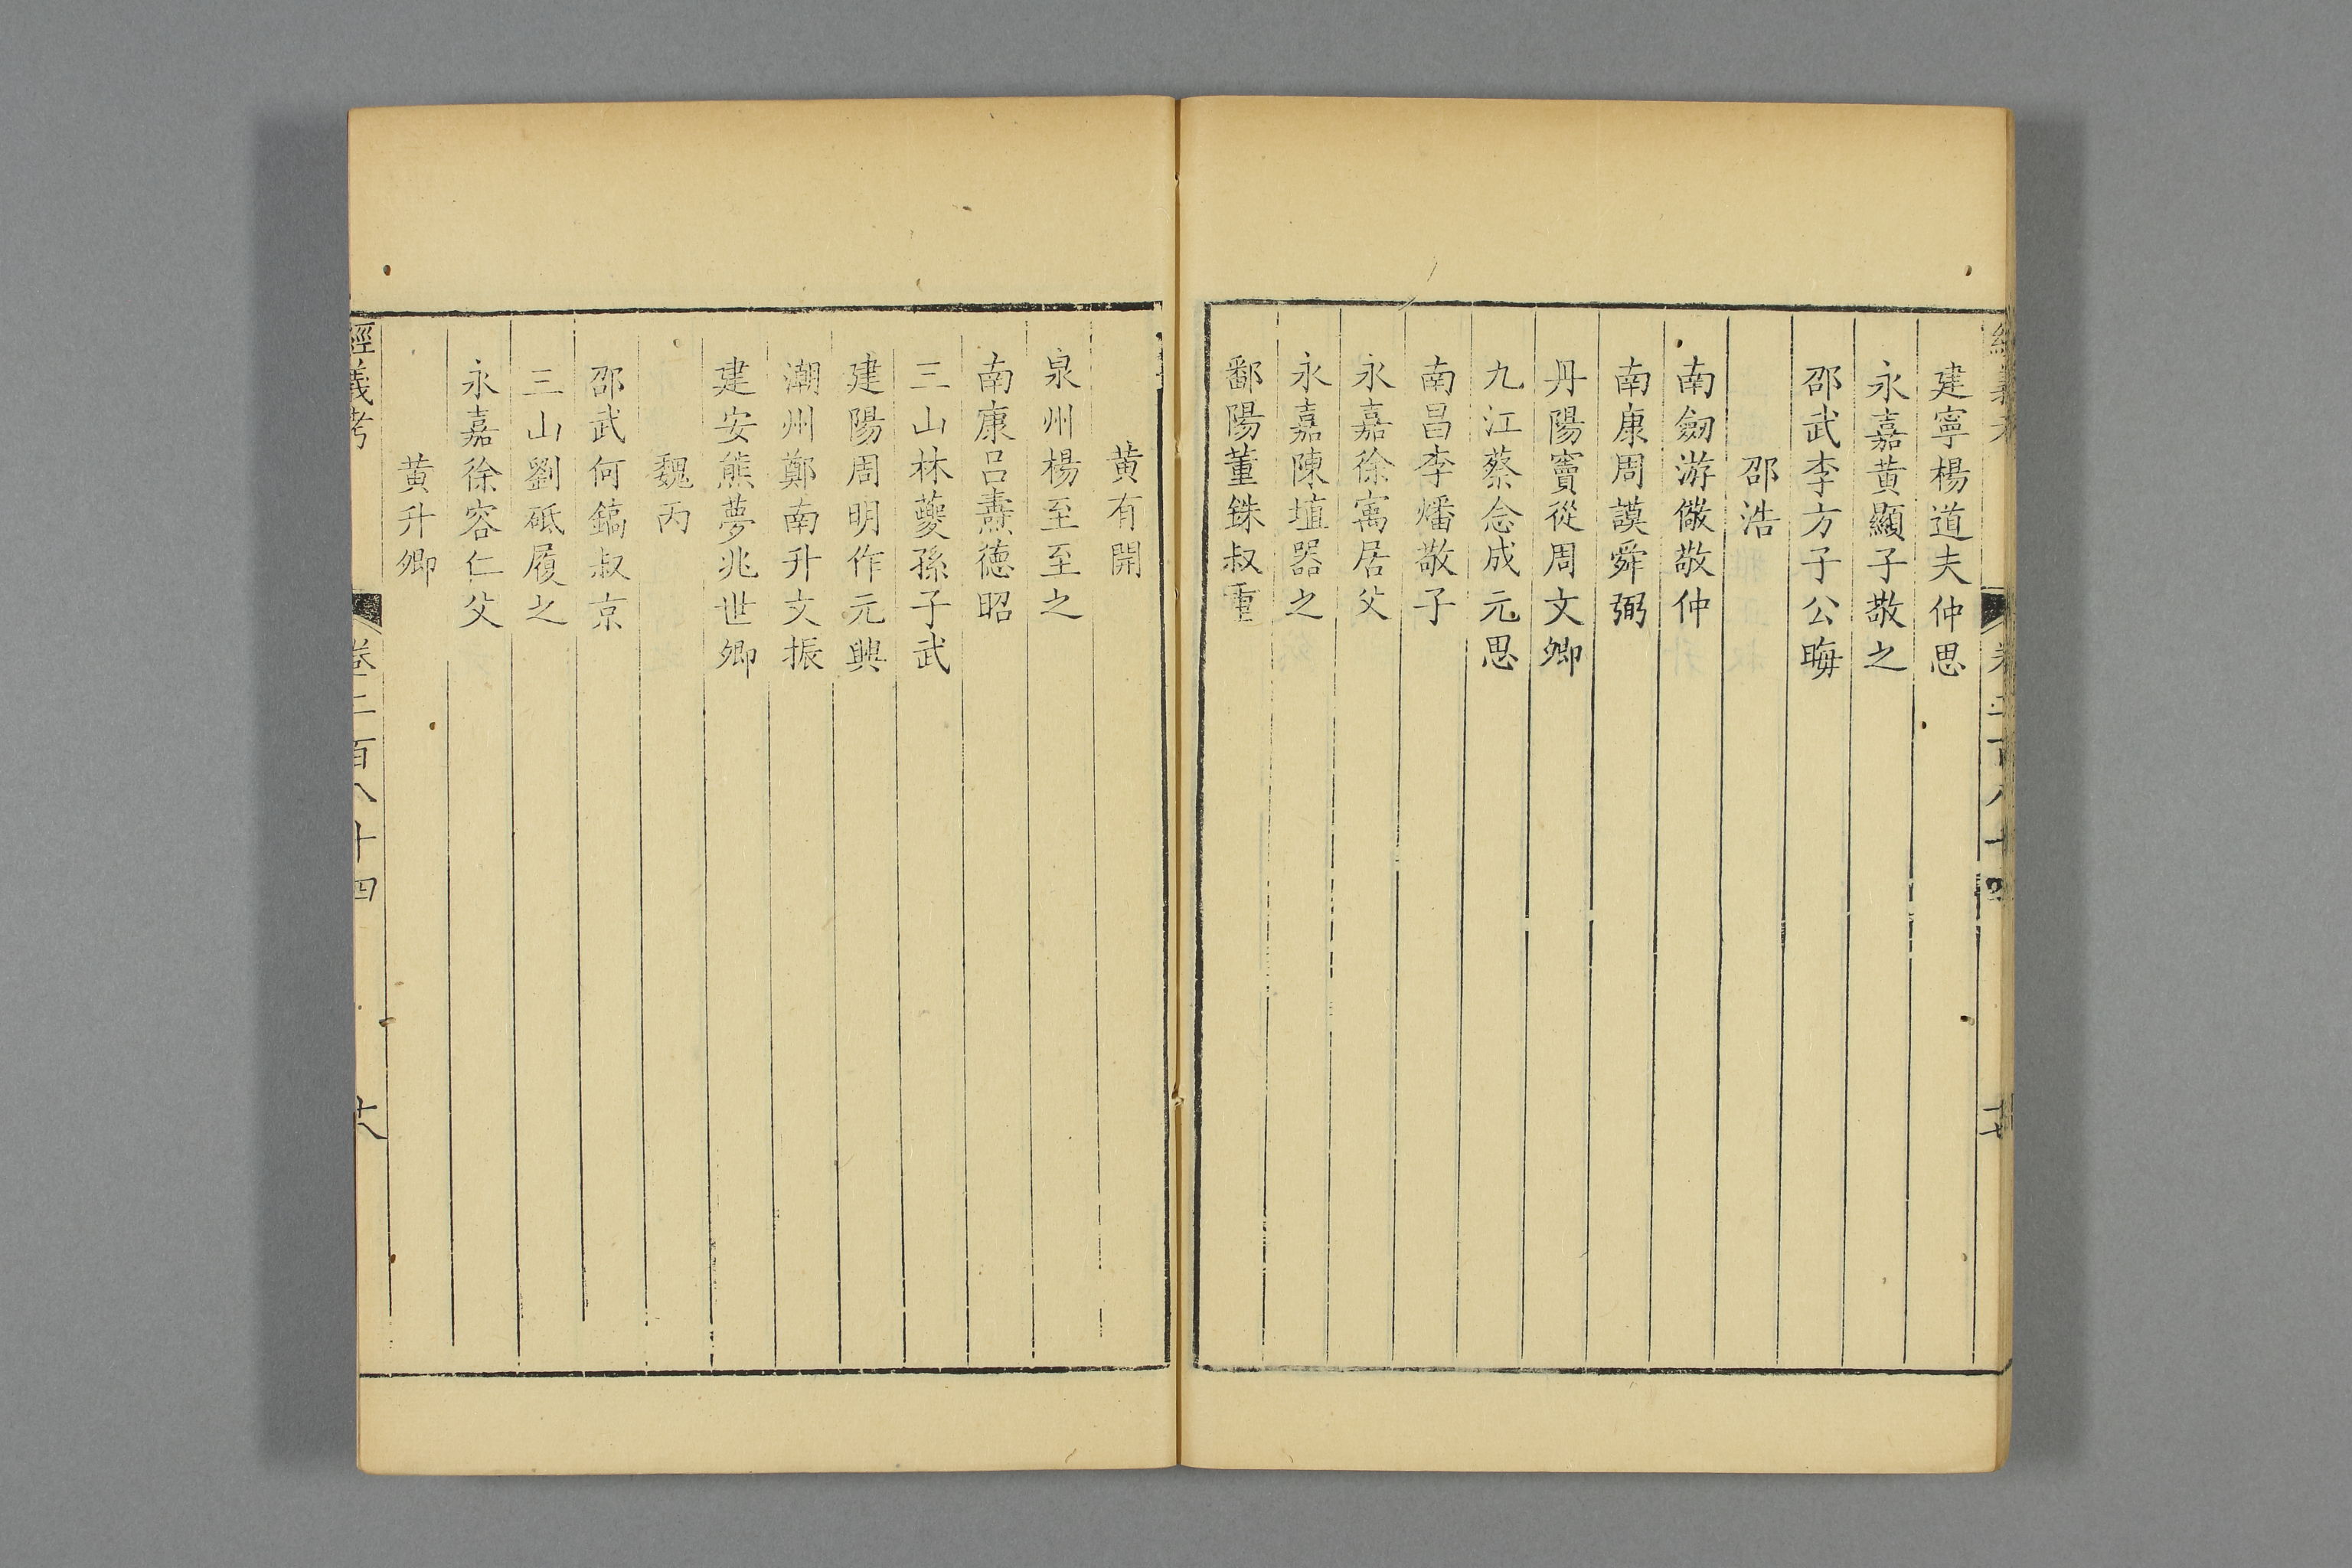 建寧楊道夫仲思
永嘉黃顯子敬之
邵武李方子公晦
邵浩
南劒游儆敬仲
南康周謨舜弼
丹陽竇從周文卿
九江蔡念成元思
南昌李燔敬子
永嘉徐㝢居父
永嘉陳埴器之
鄱陽董銖叔重
黃有開
泉州楊至至之
南康呂燾德昭
三山林夔孫子武
建陽周明作元興
潮州鄭南升文振
建安熊夢兆世卿
魏丙
邵武何鎬叔京
三山劉砥履之
永嘉徐容仁父
黃升卿
經義考
卷二百八十四
十八